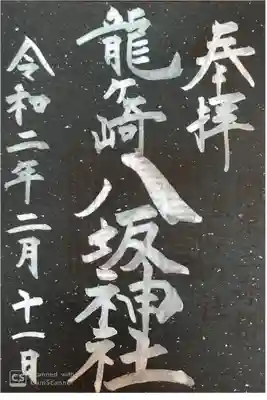 奉拝
龍ヶ崎八坂神社
令和二年二月十一日
CS Scanned with
CamScanner